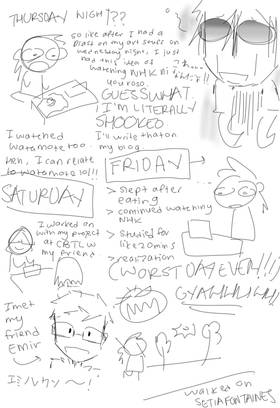 THURSDAY NIGHT??
so like after I had a
blast on my art stuffs on
wednesday night, I just
had this idea of
watching NHK ni
youkoso
GUESS WHAT.
I'M LITERALLY
SHOOKED
I'll write that on
my blog
I watched
watamote too.
Heh, I can relate
to watamote lol!!
FRIDAY
> slept after
eating
> continued watching
NHK
> studied for
like 20mins
> realization
(WORST DAY EVER!!!)
SATURDAY
I worked on
with my project
at CBTL w
my friend
I met
my
friend
Emir
エミルクン〜!
walked on
SETIAFONTAINES